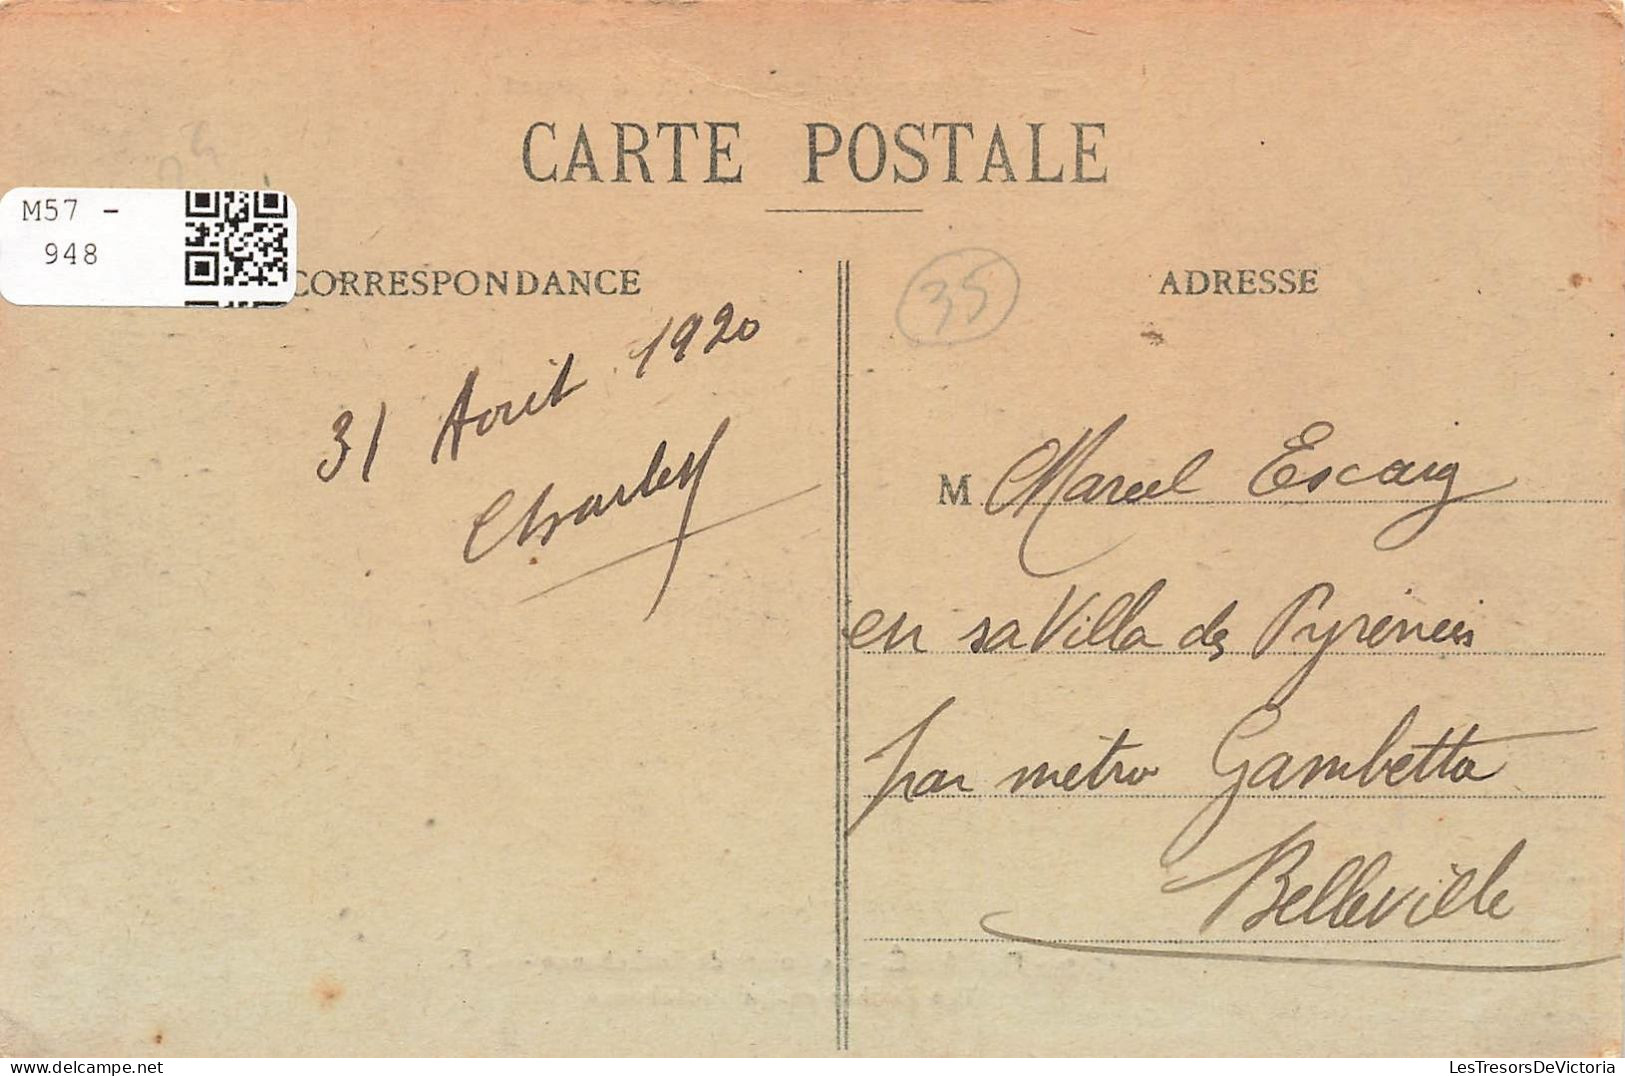 CARTE POSTALE
M57 -
948
CORRESPONDANCE
ADRESSE
35
31 Août 1920
Charles
M Marcel Escaig
en sa Villa des Pyrénées
par métro Gambetta
Belleville
LesTresorsDeVictoria